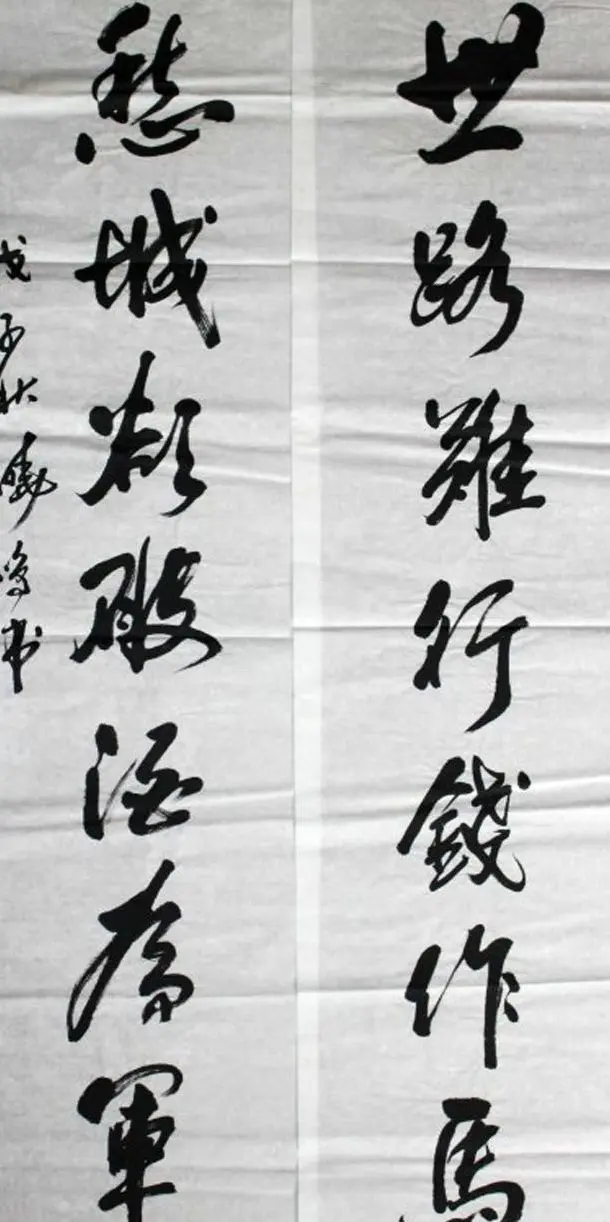 世路難行錢作馬
愁城欲破酒為軍
戊子秋鳴书